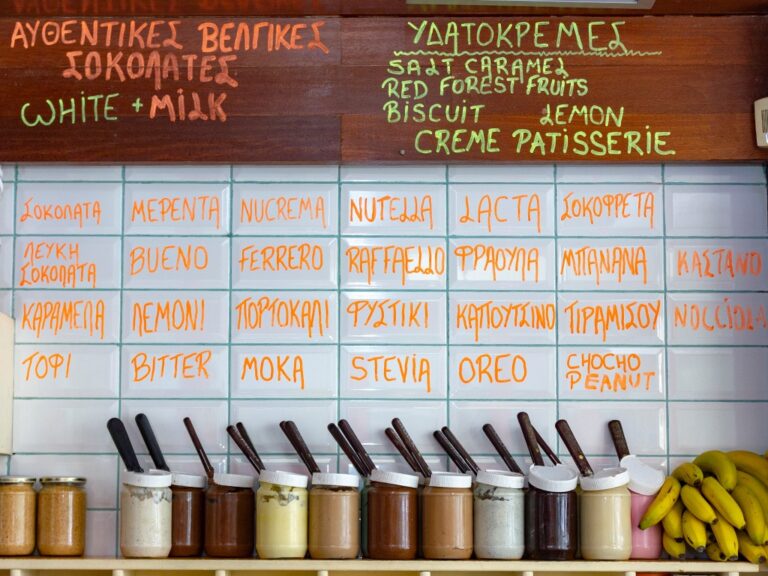 ΑΥΘΕΝΤΙΚΕΣ ΒΕΛΓΙΚΕΣ
ΣΟΚΟΛΑΤΕΣ
WHITE + MILK
ΥΔΑΤΟΚΡΕΜΕΣ
SALT CARAMEL
RED FOREST FRUITS
BISCUIT LEMON
CREME PATISSERIE
ΣΟΚΟΛΑΤΑ ΜΕΡΕΝΤΑ NUCREMA NUTELLA LACTA ΣΟΚΟΦΡΕΤΑ
ΛΕΥΚΗ ΣΟΚΟΛΑΤΑ BUENO FERRERO RAFFAELLO ΦΡΑΟΥΛΑ ΜΠΑΝΑΝΑ ΚΑΣΤΑΝΟ
ΚΑΡΑΜΕΛΑ ΛΕΜΟΝΙ ΠΟΡΤΟΚΑΛΙ ΦΥΣΤΙΚΙ ΚΑΠΟΥΤΣΙΝΟ ΤΙΡΑΜΙΣΟΥ NOCCIOLA
ΤΟΦΙ BITTER ΜΟΚΑ STEVIA OREO CHOCHO PEANUT